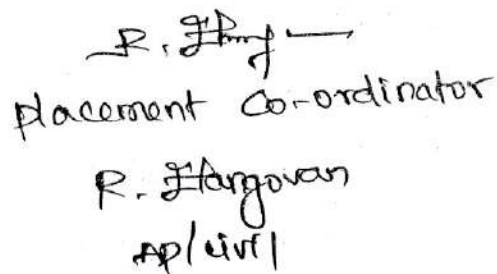 placement Co-ordinator
R. Elangovan
AP/civil